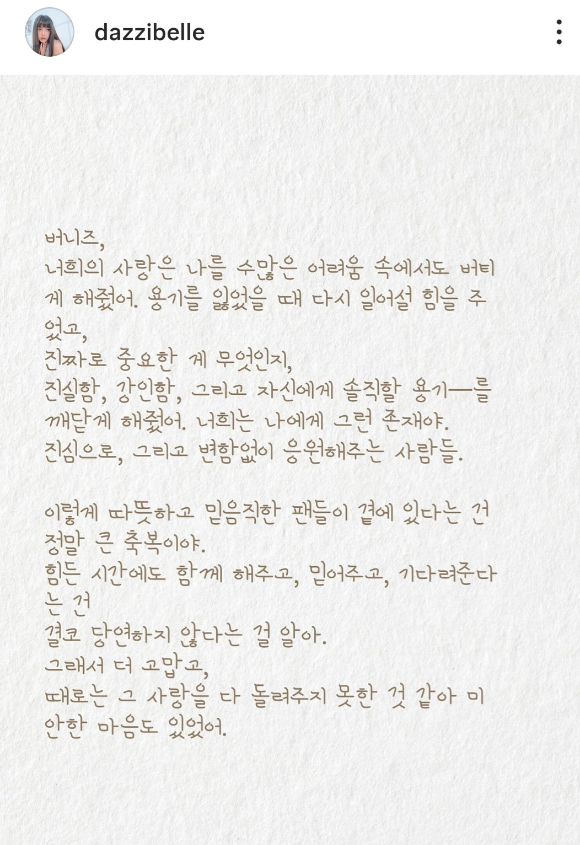 dazzibelle
버니즈,
너희의 사랑은 나를 수많은 어려움 속에서도 버티
게 해줬어. 용기를 잃었을 때 다시 일어설 힘을 주
었고,
진짜로 중요한 게 무엇인지,
진실함, 강인함, 그리고 자신에게 솔직할 용기—를
깨닫게 해줬어. 너희는 나에게 그런 존재야.
진심으로, 그리고 변함없이 응원해주는 사람들.
이렇게 따뜻하고 믿음직한 팬들이 곁에 있다는 건
정말 큰 축복이야.
힘든 시간에도 함께 해주고, 믿어주고, 기다려준다
는 건
결코 당연하지 않다는 걸 알아.
그래서 더 고맙고,
때로는 그 사랑을 다 돌려주지 못한 것 같아 미
안한 마음도 있었어.